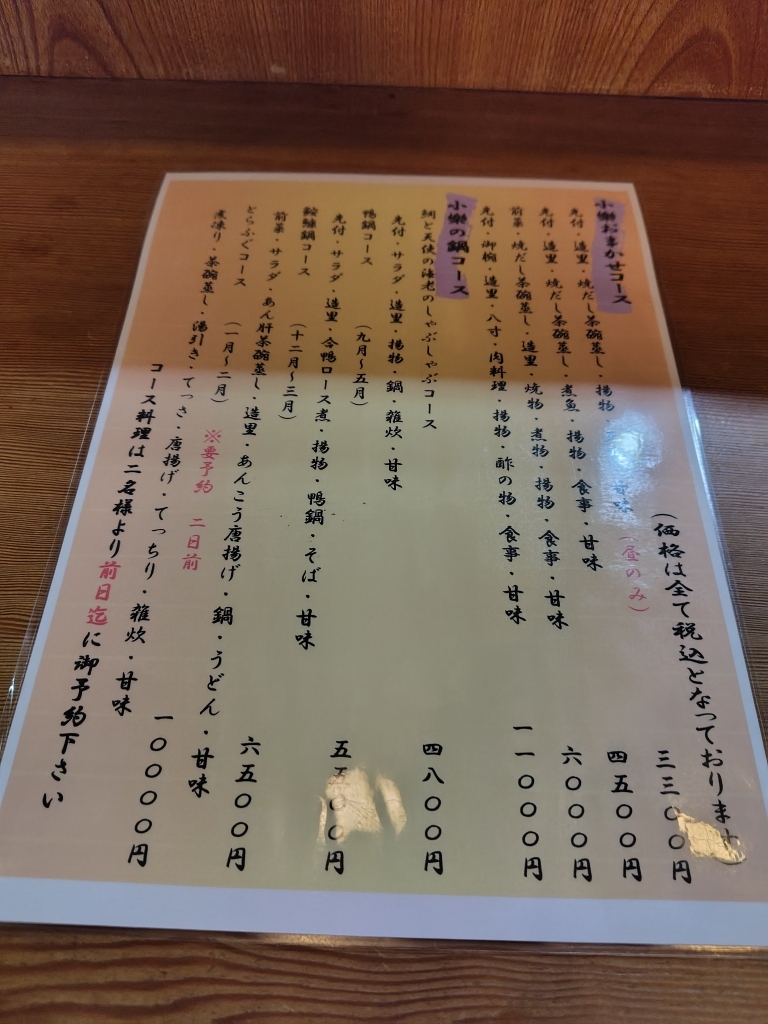 小樂おまかせコース
(価格は全て税込となっております
先付・造里・焼だし茶碗蒸し・揚物・ 甘味 (昼のみ) 三三〇〇円
先付・造里・焼だし茶碗蒸し・煮魚・揚物・食事・甘味 四五〇〇円
前菜・焼だし茶碗蒸し・造里・焼物・煮物・揚物・食事・甘味 六〇〇〇円
先付・御椀・造里・八寸・肉料理・揚物・酢の物・食事・甘味 一一〇〇〇円
小樂の鍋コース
鯛と天使の海老のしゃぶしゃぶコース
先付・サラダ・造里・揚物・鍋・雑炊・甘味 四八〇〇円
鴨鍋コース (九月〜五月)
先付・サラダ・造里・合鴨ロース煮・揚物・鴨鍋・そば・甘味 五五〇〇円
鮟鱇鍋コース (十二月〜三月)
前菜・サラダ・あん肝茶碗蒸し・造里・あんこう唐揚げ・鍋・うどん・甘味 六五〇〇円
とらふぐコース (一月〜二月) ※要予約 二日前
煮凍り・茶碗蒸し・湯引き・てっさ・唐揚げ・てっちり・雑炊・甘味 一〇〇〇〇円
コース料理は二名様より前日迄に御予約下さい